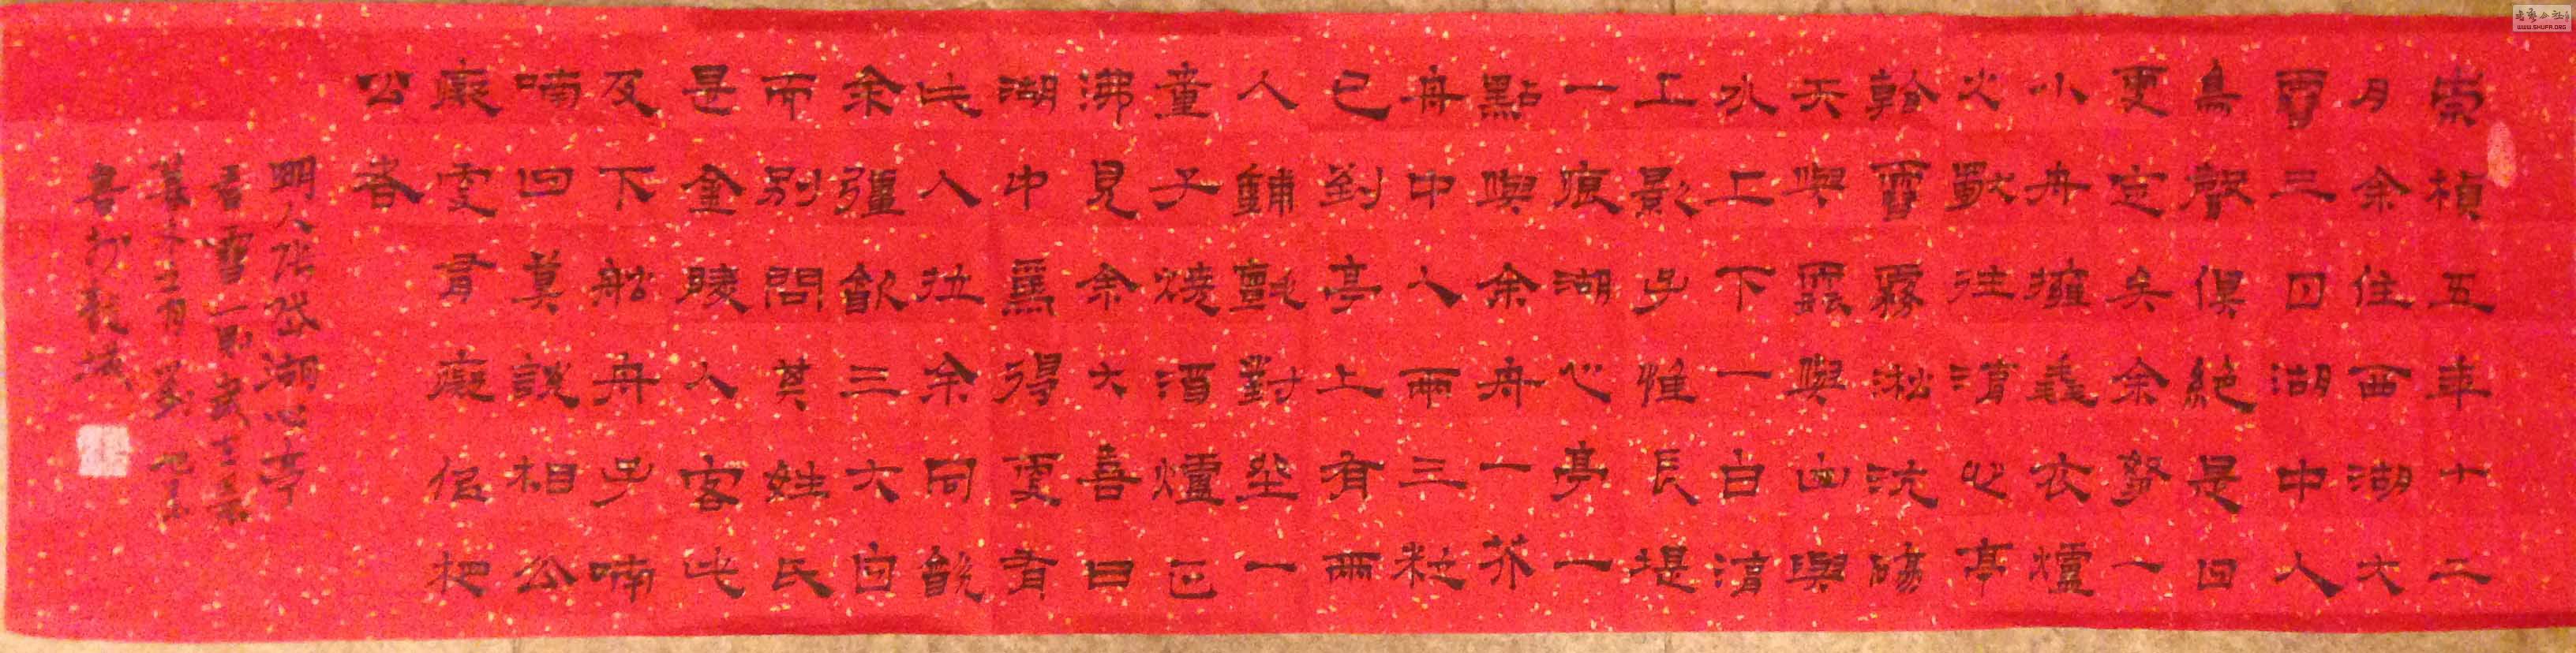 崇禎五年十二
月余住西湖大
雪三日湖中人
鳥聲俱絕是日
更定矣余拏一
小舟擁毳衣爐
火獨往湖心亭
看雪霧淞沆碭
天與雲與山與
水上下一白湖
上影子惟長堤
一痕湖心亭一
點與余舟一芥
舟中人兩三粒
已到亭上有兩
人鋪氈對坐一
童子燒酒爐正
沸見余大喜曰
湖中焉得更有
此人拉余同飲
余彊飲三大白
而別問其姓氏
是金陵人客此
及下船舟子喃
喃曰莫談相公
癡更有癡似相
公者
明人張岱湖心亭
看雪一則歲
暮冬之月
WWW.SHUFA.ORG